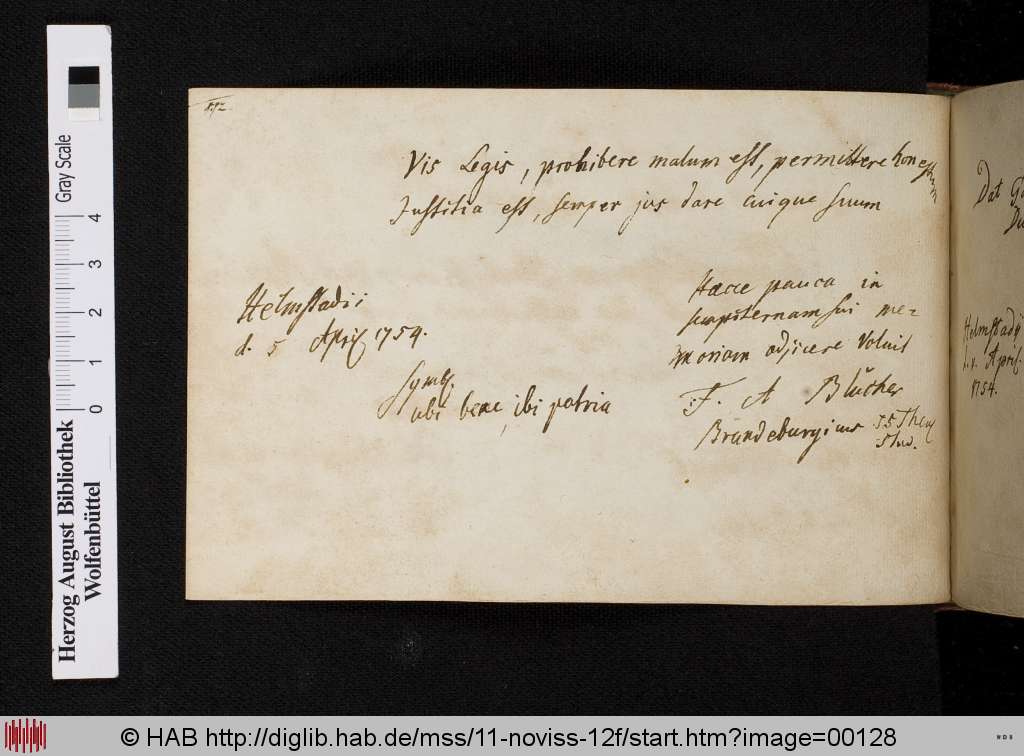 Vis Legis, prohibere malum est, permittere honestum
Justitia est, semper jus dare cuique suum
Helmstadii
d. 5 April 1754.
Symb.
ubi bene, ibi patria
Haece pauca in
sempiternam sui me-
moriam adjicere voluit
F. A Blücher
Brandeburgicus SS Theol
Stud.
Dat
Helmstadii
April.
1754.
Gray Scale
0 1 2 3 4
Herzog August Bibliothek
Wolfenbüttel
© HAB http://diglib.hab.de/mss/11-noviss-12f/start.htm?image=00128